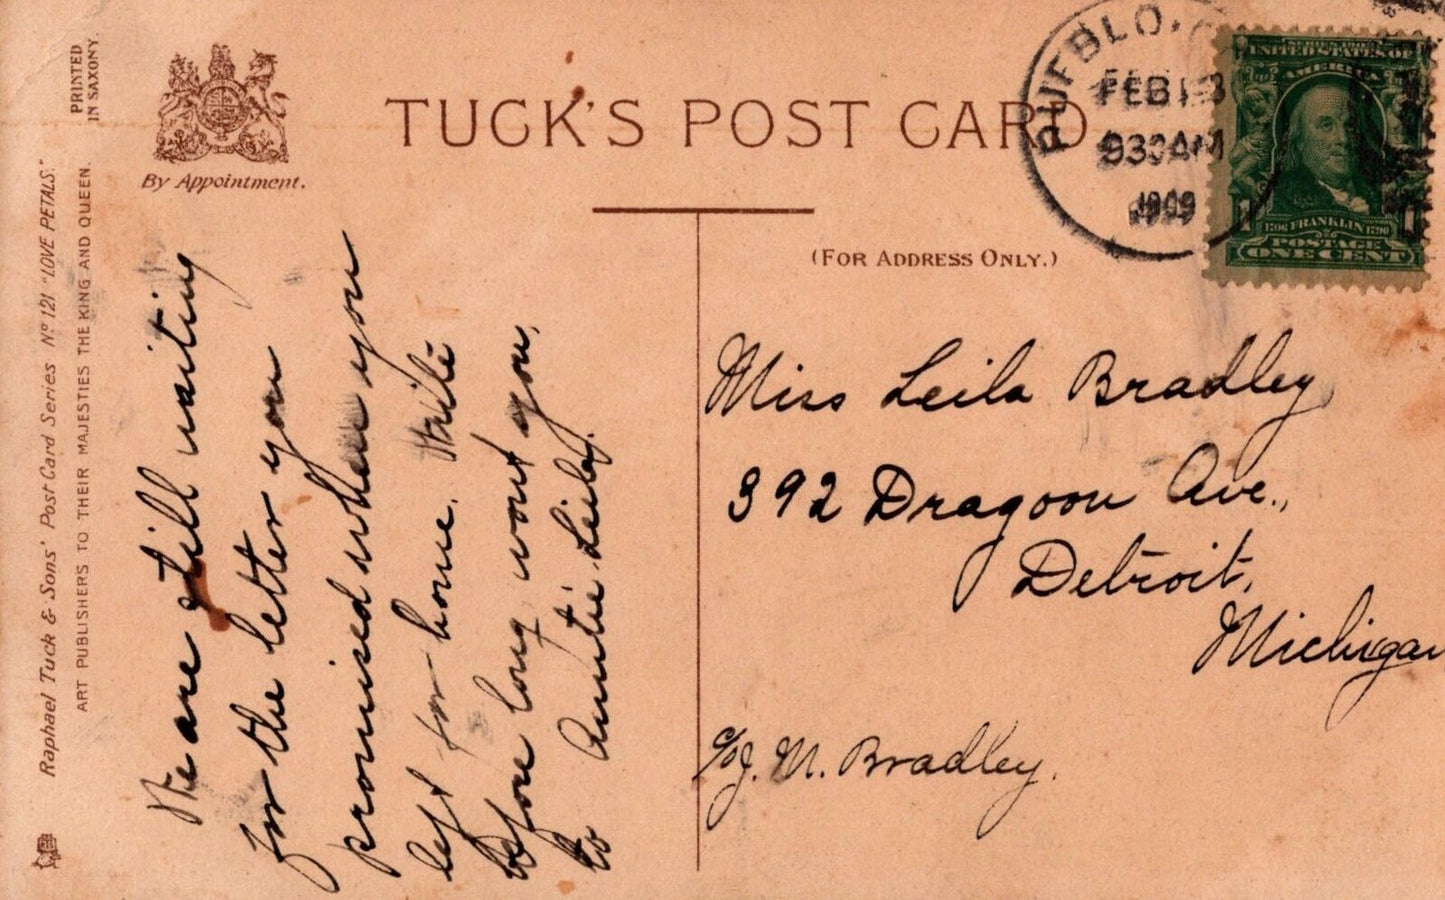 PRINTED
IN SAXONY.
By Appointment.
TUCK'S POST CARD
Raphael Tuck & Sons' Post Card Series Nº 121 "LOVE PETALS."
ART PUBLISHERS TO THEIR MAJESTIES THE KING AND QUEEN.
PUEBLO,
FEB 13
930AM
1909
SERIES 1902
UNITED STATES OF
AMERICA
1706 FRANKLIN 1790
POSTAGE
ONE CENT
(FOR ADDRESS ONLY.)
We are still waiting
for the letter you
promised when you
left for home. Write
before long wont you,
to Auntie Leila.
Miss Leila Bradley
392 Dragoon Ave.,
Detroit,
Michigan
c/o J. M. Bradley.